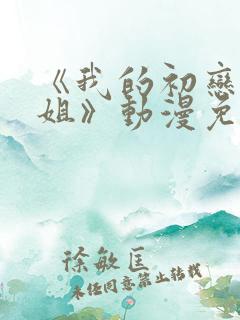 《我的初戀
姐》動漫免
徐敏匡
未经同意禁止转载